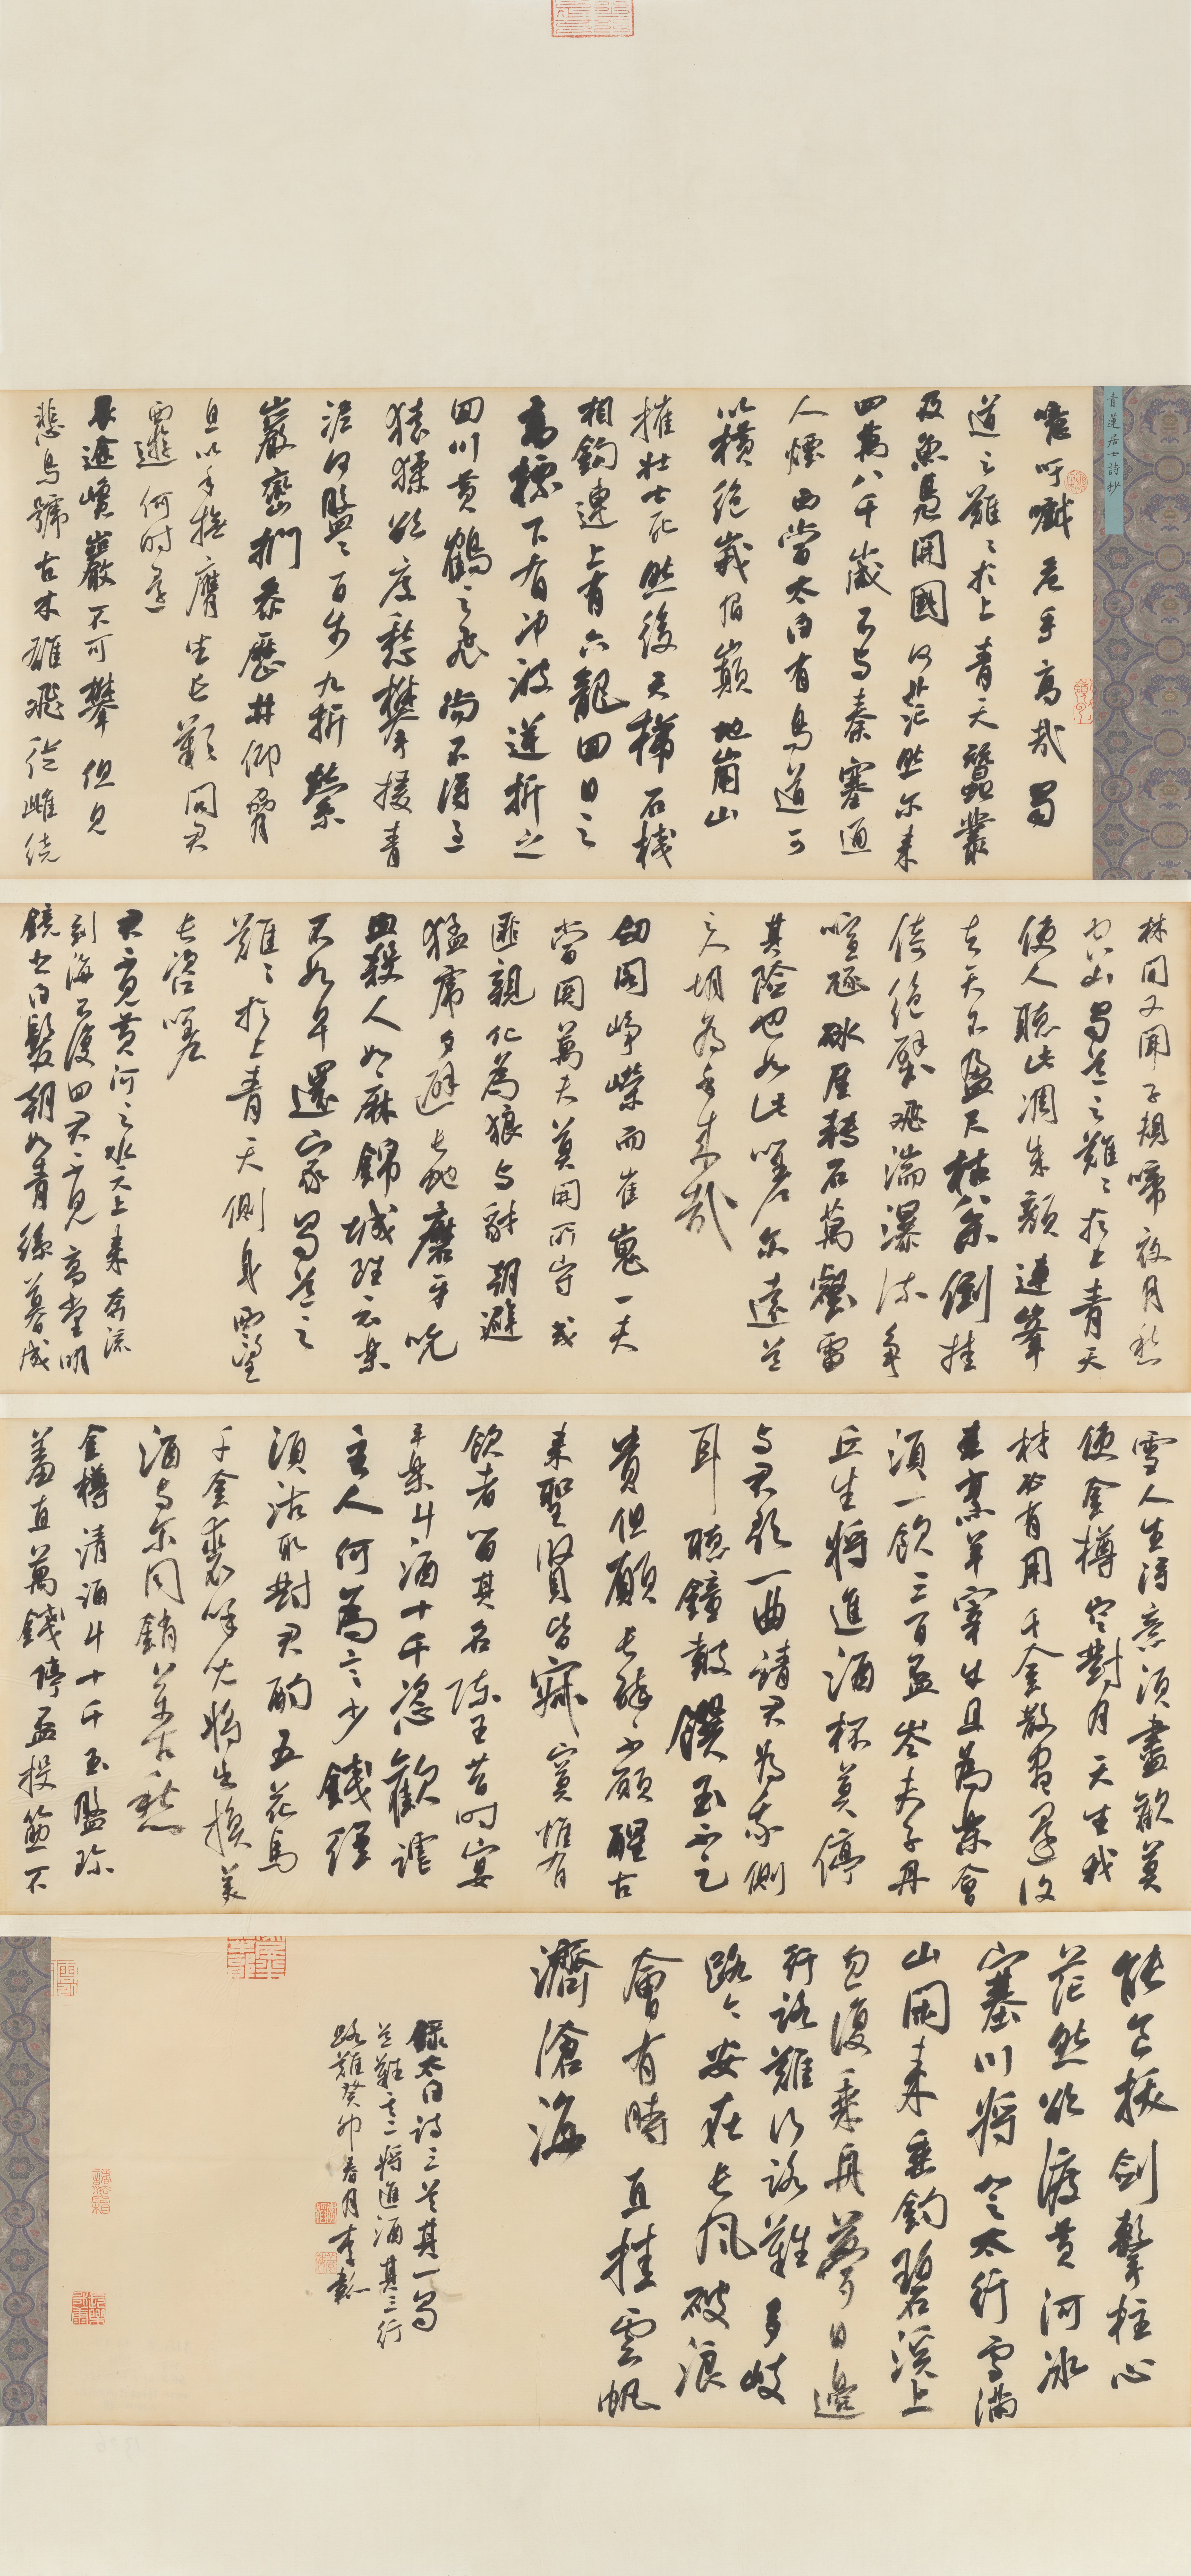 青蓮居士詩抄
噫吁嚱危乎高哉蜀
道之難〻於上青天蠶叢
及魚鳧開國何茫然尔来
四萬八千歲不与秦塞通
人煙西當太白有鳥道可
以橫絕峨眉巔地崩山
摧壯士死然後天梯石棧
相鈎連上有六龍回日之
高標下有冲波逆折之
回川黃鶴之飛尚不得過
猿猱欲度愁攀援青
泥何盤〻百步九折縈
巖巒捫參歷井仰脅
息以手撫膺坐長歎問君
西遊何時還
畏途巉巖不可攀但見
悲鳥號古木雄飛從雌繞
林間又聞子規啼夜月愁
空山蜀道之難〻於上青天
使人聽此凋朱顏連峯
去天不盈尺枯松倒挂
倚絕壁飛湍瀑流争
喧豗砯崖轉石萬壑雷
其險也如此嗟尔遠道
之人胡為乎来哉
劒閣崢嶸而崔嵬一夫
當關萬夫莫開所守或
匪親化為狼与豺朝避
猛虎夕避長蛇磨牙吮
血殺人如麻錦城雖云樂
不如早還家蜀道之
難〻於上青天側身西望
長咨嗟
君不見黃河之水天上来奔流
到海不復回君不見高堂明
鏡悲白髮朝如青絲暮成
雪人生得意須盡歡莫
使金樽空對月天生我
材必有用千金散盡還復
来烹羊宰牛且為樂會
須一飲三百盃岑夫子丹
丘生將進酒杯莫停
与君歌一曲請君為我側
耳聽鐘鼓饌玉不足
貴但願長醉不願醒古
来聖賢皆寂寞惟有
飲者留其名陳王昔時宴
平樂斗酒十千恣歡謔
主人何為言少錢徑
須沽取對君酌五花馬
千金裘呼兒將出換美
酒与尔同銷萬古愁
金樽清酒斗十千玉盤珍
羞直萬錢停盃投筯不
能食拔劍擊柱心
茫然欲渡黃河冰
塞川將登太行雪滿
山閑来垂釣碧溪上
忽復乘舟夢日邊
行路難行路難多岐
路今安在長風破浪
會有時直挂雲帆
濟滄海
錄太白詩三首其一蜀
道難其二將進酒其三行
路難癸卯春月李